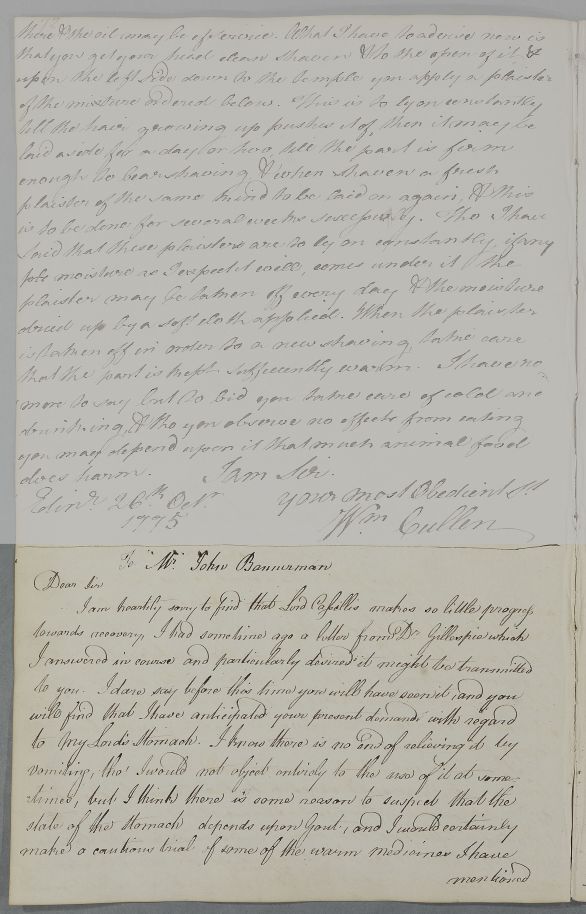 there & the oil may be of service. What I have to advise now is
that you get your head clean shaven & to the open of it &
upon the left side down to the temple you apply a plaister
of the mixture ordered below. This is to ly on constantly
till the hair growing up pushes it of, then it may be
laid aside for a day or two, till the part is firm
enough to bear shaving & when shaven a fresh
plaister of the same kind to be laid on again, & this
is to be done for several weeks successively. Tho I have
said that these plaisters are to ly on constantly, if any
moisture as I expect it will, comes under it the
plaister may be taken off every day & the moisture
dried up by a soft cloth applied. When the plaister
is taken off in order to a new shaving, take care
that the part is kept sufficiently warm. I have no
more to say but to bid you take care of cold and
drinking, & tho you observe no effects from eating
you may depend upon it that much animal food
does harm. I am Sir.
Edinr 26th Octr your most Obedient St
1775 Wm Cullen
To Mr. John Bannerman
Dear Sir
I am heartily sorry to find that Lord Cassillis makes so little progress
towards recovery, I had sometime ago a letter from Dr. Gillespie which
I answered in course and particularly desired it might be transmitted
to you. I dare say before this time you will have seen it, and you
will find that I have anticipated your present demand, with regard
to My Lord's Stomach. I know there is no end of relieving it by
vomiting, tho' I would not object entirely to the use of it at some-
times, but I think there is some reason to suspect that the
state of the Stomach depends upon Gout, and I would certainly
make a cautious trial of some of the warm medicines I have
mentioned